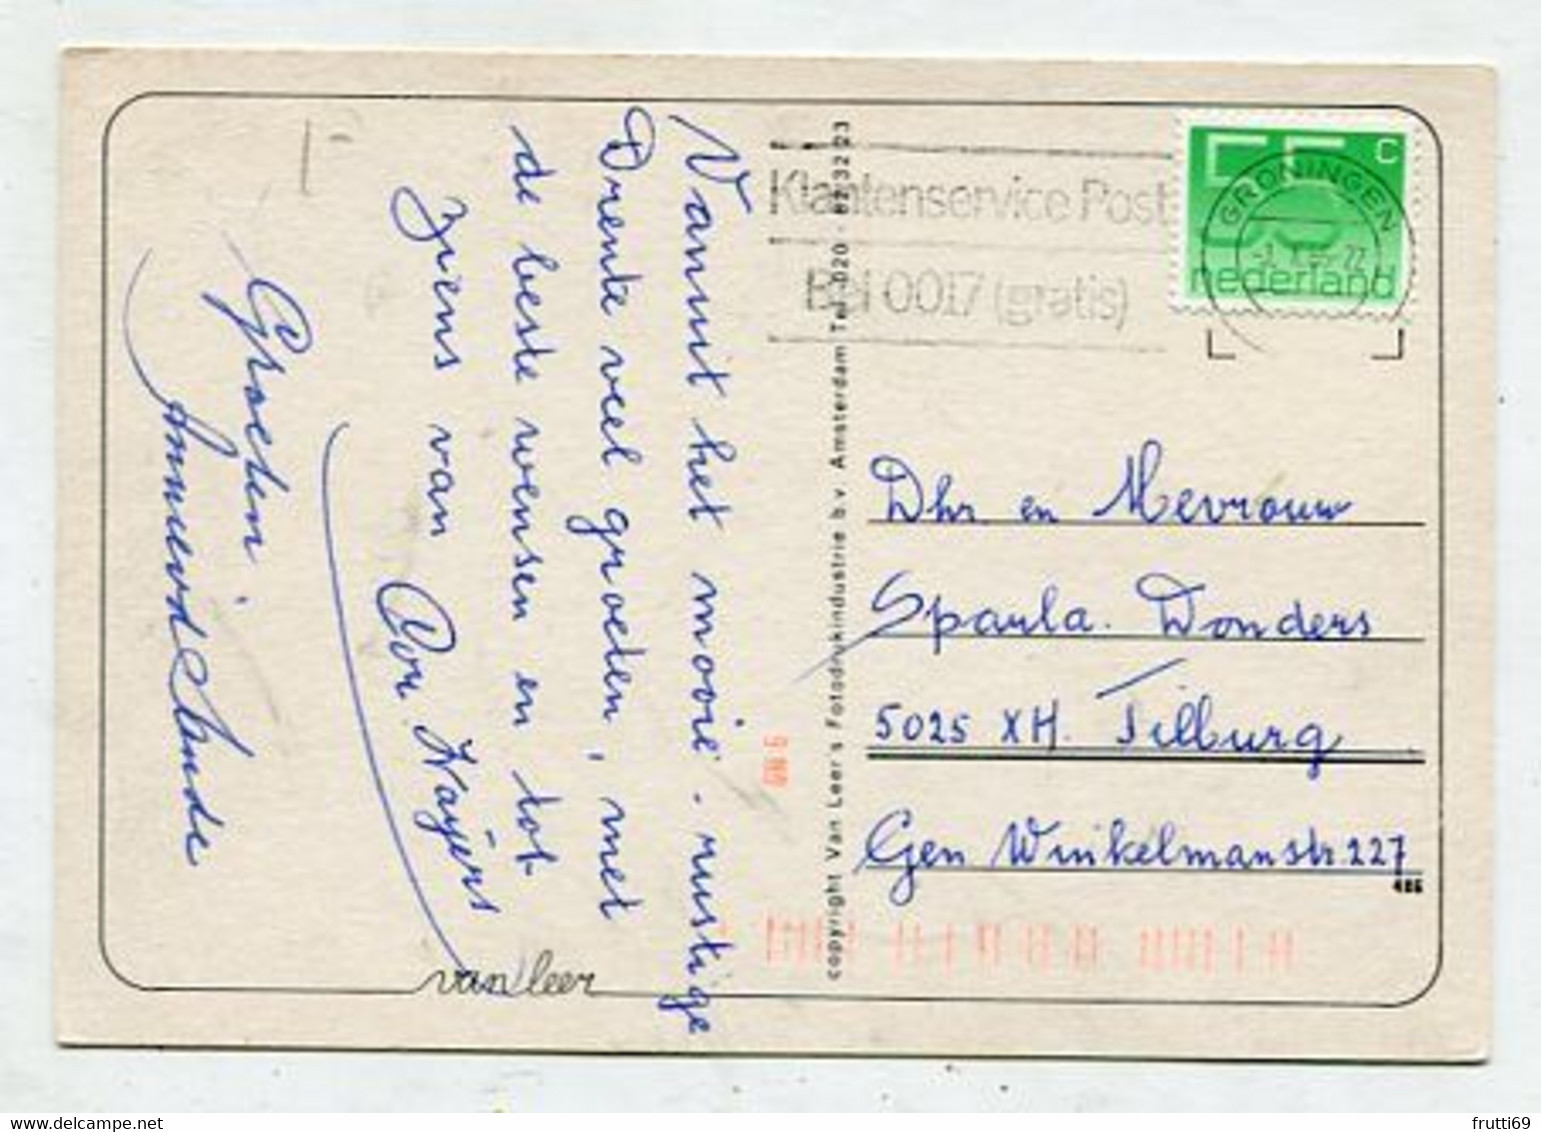 Vanuit het mooie. rustige
Drente veel groeten, met
de beste wensen en tot
ziens van Cor Kayers
Groeten
van leer
copyright Van Leer's Fotodrukindustrie b.v. Amsterdam Tel. 020 - 82 32 23
Klantenservice Post
Bel 0017 (gratis)
55 c
nederland
GRONINGEN
Dhr en Mevrouw
Spaula. Donders
5025 XH. Tilburg
Gen Winkelmanstr 227
486
frutti69
delcampe.net